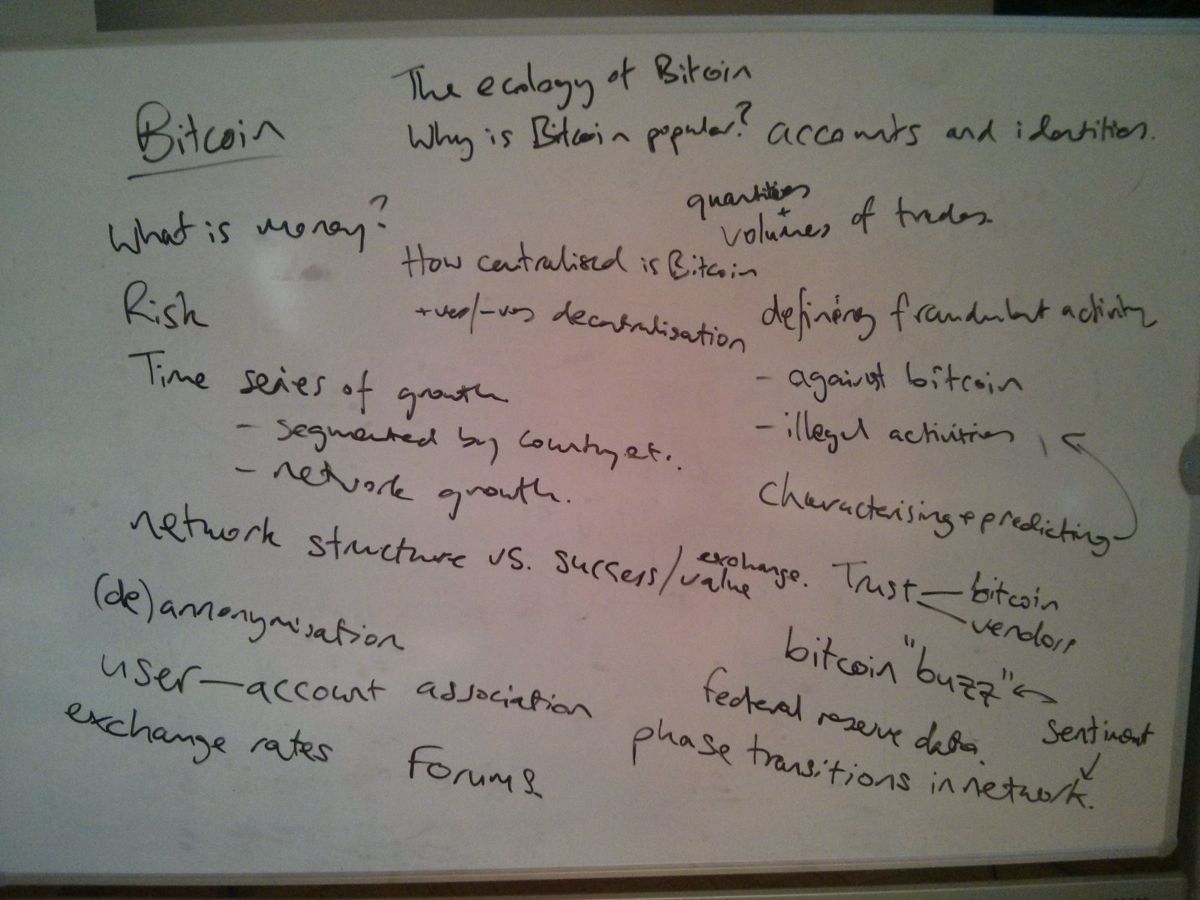 The ecology of Bitcoin
Bitcoin
Why is Bitcoin popular?
accounts and identities.
What is money?
quantities
+
volumes of trades
How centralised is Bitcoin
Risk
+ves/-ves decentralisation
defining fraudulent activity
Time series of growth
- against bitcoin
- segmented by country et..
- illegal activities
- network growth.
characterising + predicting
network structure vs. success/exchange value.
Trust — bitcoin
vendors
(de)annonymisation
bitcoin "buzz"
user—account association
federal reserve data.
sentiment
exchange rates
Forums
phase transitions in network.